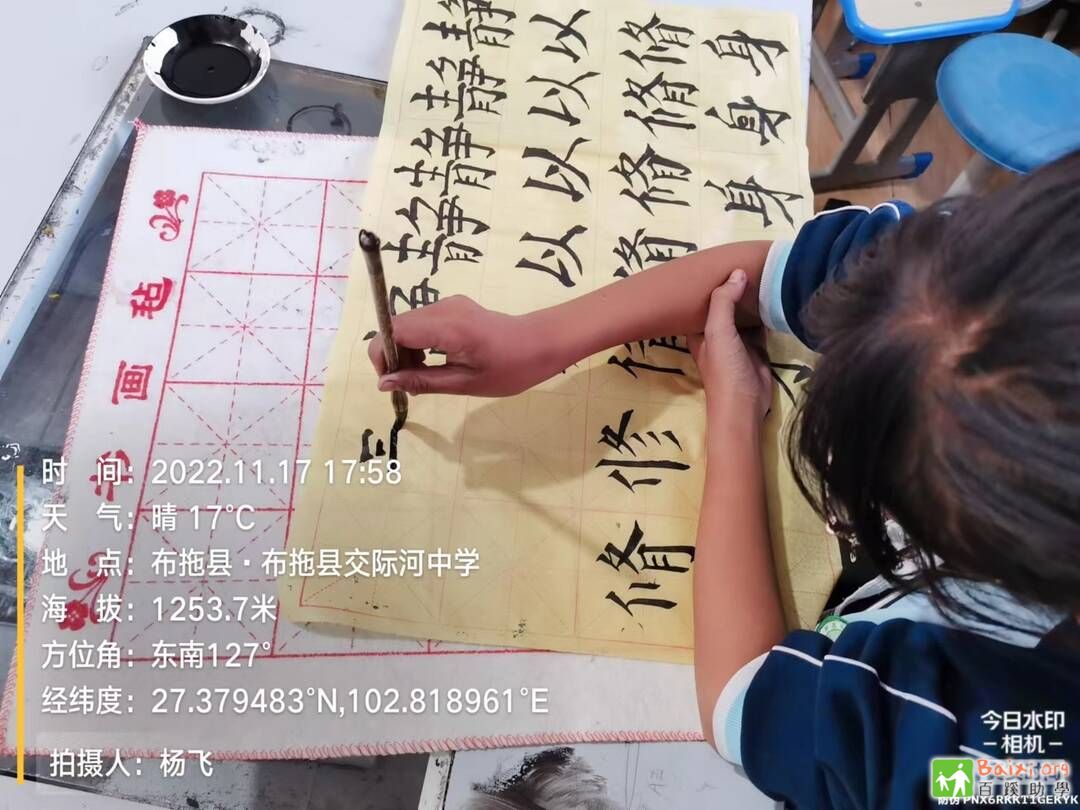 静以修身
静以修身
静以修身
静以修
修
修
修
书画毡
时 间：2022.11.17 17:58
天 气：晴 17℃
地 点：布拖县·布拖县交际河中学
海 拔：1253.7米
方位角：东南127°
经纬度：27.379483°N,102.818961°E
拍摄人：杨飞
今日水印
-相机-
Baixi.org
百蹊助學